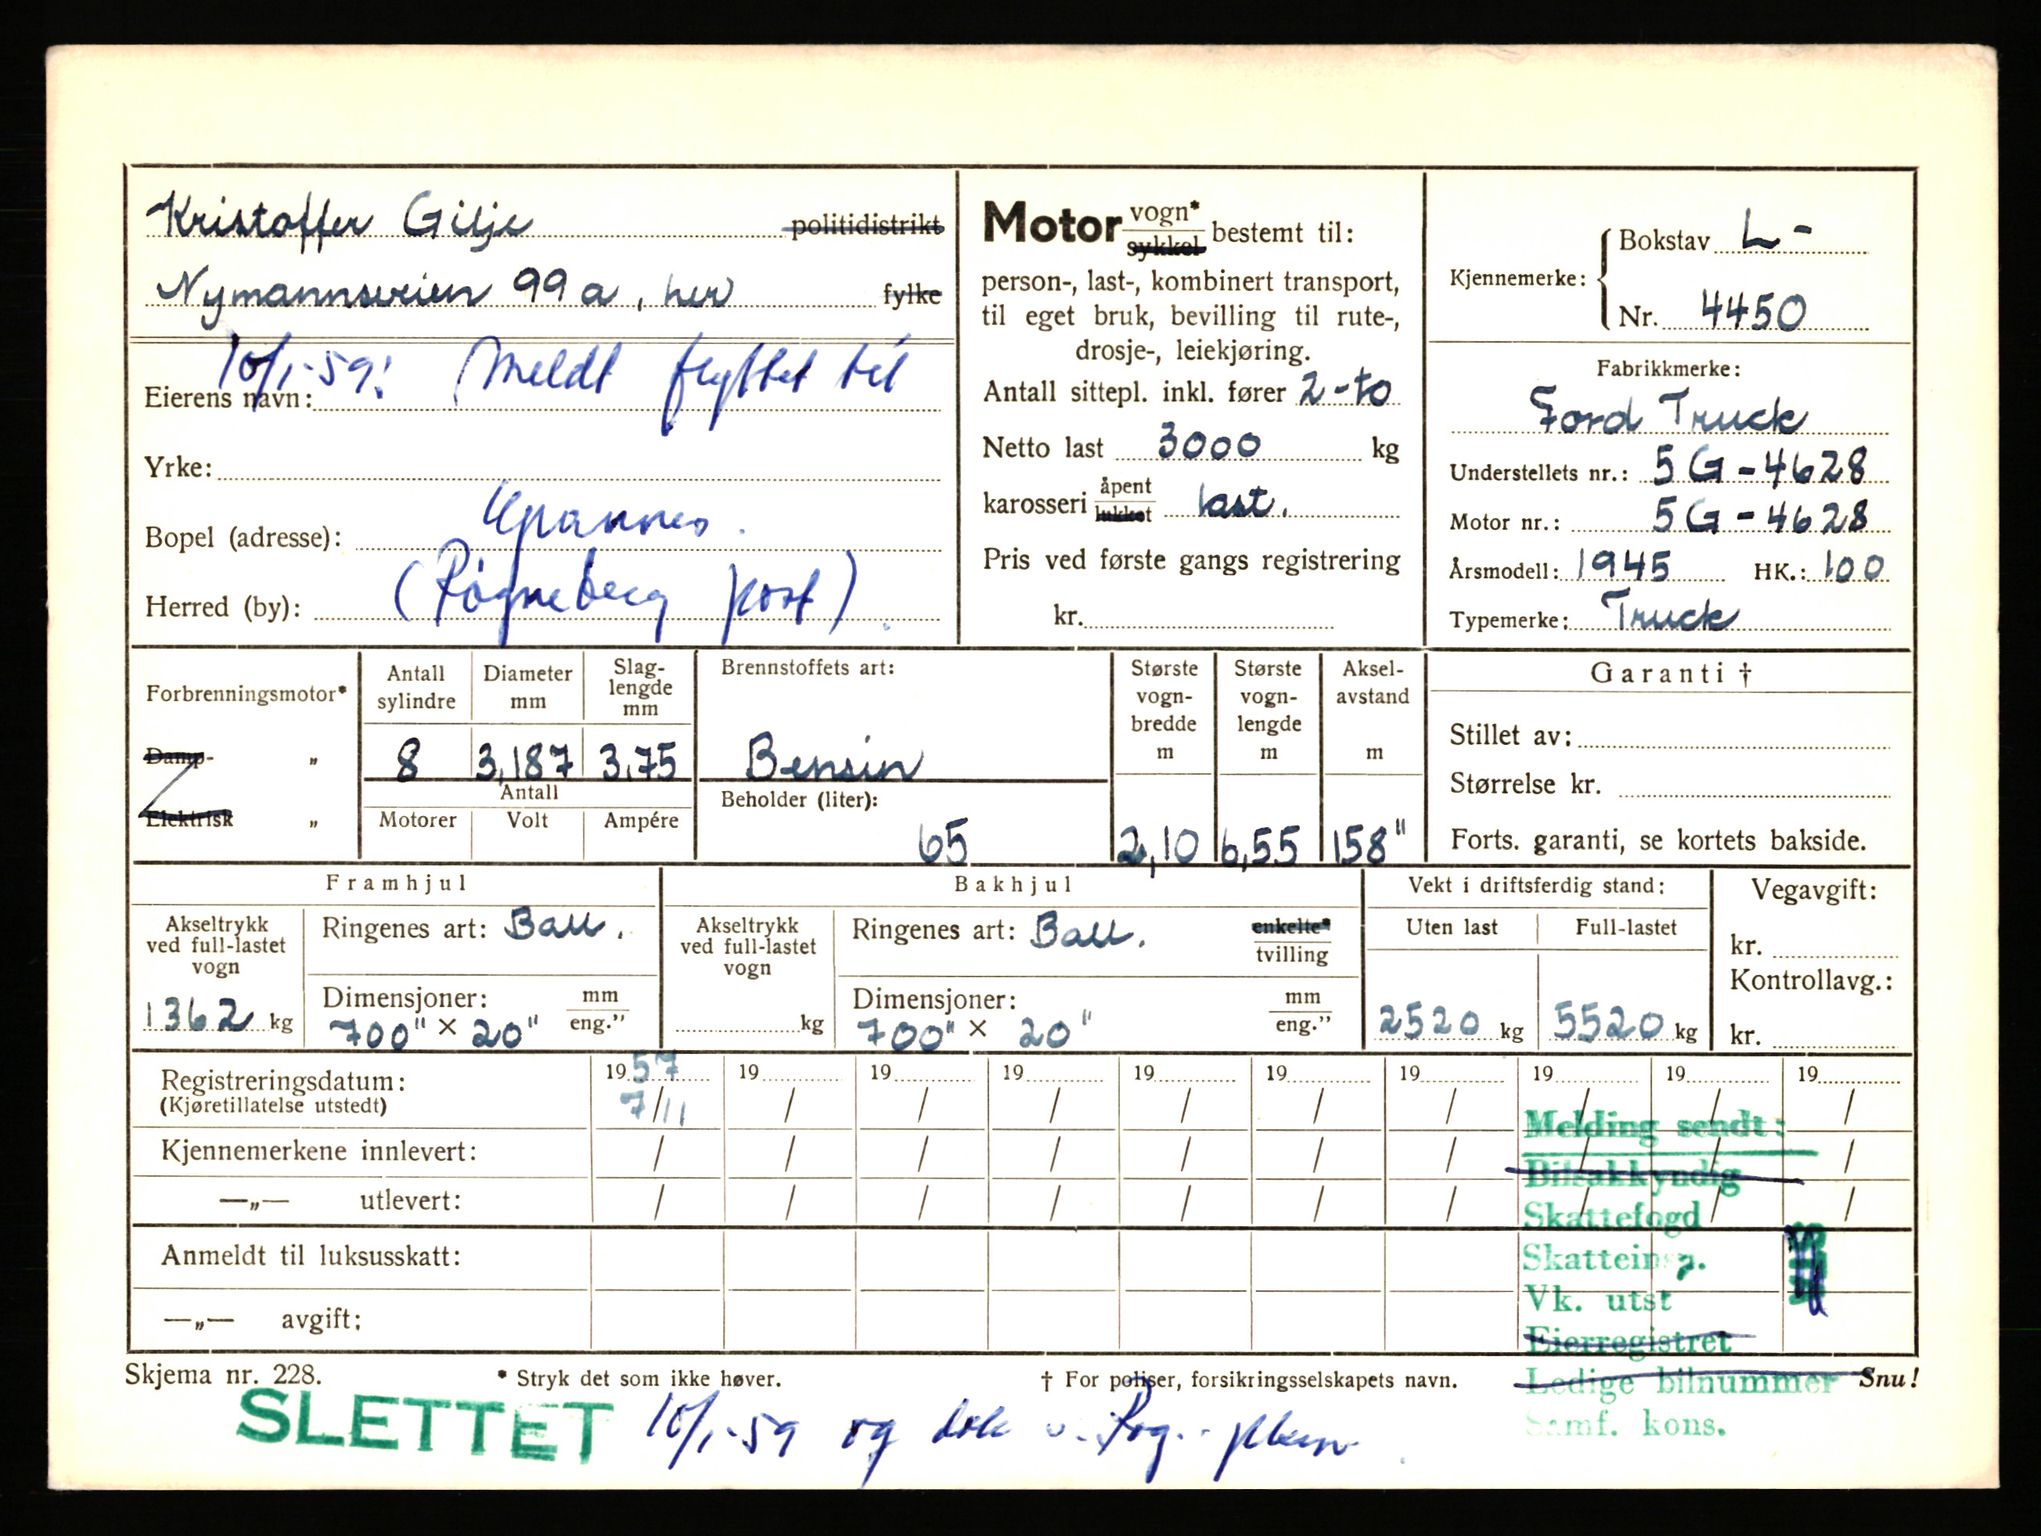 Kristoffer Gilje politidistrikt
Nymannsveien 99 a, her fylke
10/1-59: Meldt flyttet til
Eierens navn:
Yrke:
Bopel (adresse):
Herred (by): (Røyneberg post)
Motor vogn* sykkel bestemt til:
person-, last-, kombinert transport,
til eget bruk, bevilling til rute-,
drosje-, leiekjøring.
Antall sittepl. inkl. fører 2-to
Netto last 3000 kg
karosseri åpent lukket last.
Pris ved første gangs registrering
kr.
Kjennemerke: Bokstav L-
Nr. 4450
Fabrikkmerke:
Ford Truck
Understellets nr.: 5G-4628
Motor nr.: 5G-4628
Årsmodell: 1945 HK.: 100
Typemerke: Truck
Forbrenningsmotor*
Damp- „
Elektrisk „
Antall sylindre
Diameter mm
Slag-lengde mm
8 3,187 3,75
Antall
Motorer Volt Ampére
Brennstoffets art:
Bensin
Beholder (liter):
65
Største vogn-bredde m
2,10
Største vogn-lengde m
6,55
Aksel-avstand m
158"
Garanti †
Stillet av:
Størrelse kr.
Forts. garanti, se kortets bakside.
Framhjul
Akseltrykk ved full-lastet vogn
1362 kg
Ringenes art: Ball.
Dimensjoner: mm eng.”
700" × 20"
Bakhjul
Akseltrykk ved full-lastet vogn
kg
Ringenes art: Ball. enkelte* tvilling
Dimensjoner: mm eng.”
700" × 20"
Vekt i driftsferdig stand:
Uten last Full-lastet
2520 kg 5520 kg
Vegavgift:
kr.
Kontrollavg.:
kr.
Registreringsdatum: 1957 19 19 19 19 19 19 19 19 19
(Kjøretillatelse utstedt) 7/11 / / / / / / / / /
Kjennemerkene innlevert: / / / / / / / / /
—„— utlevert: / / / / / / / / /
Anmeldt til luksusskatt:
—„— avgift:
Melding sendt:
Bilsakkyndig
Skattefogd
Skatteinsp.
Vk. utst
Eierregistret
Ledige bilnummer
Samf. kons.
Skjema nr. 228. * Stryk det som ikke høver. † For poliser, forsikringsselskapets navn. Snu!
SLETTET 10/1-59 og